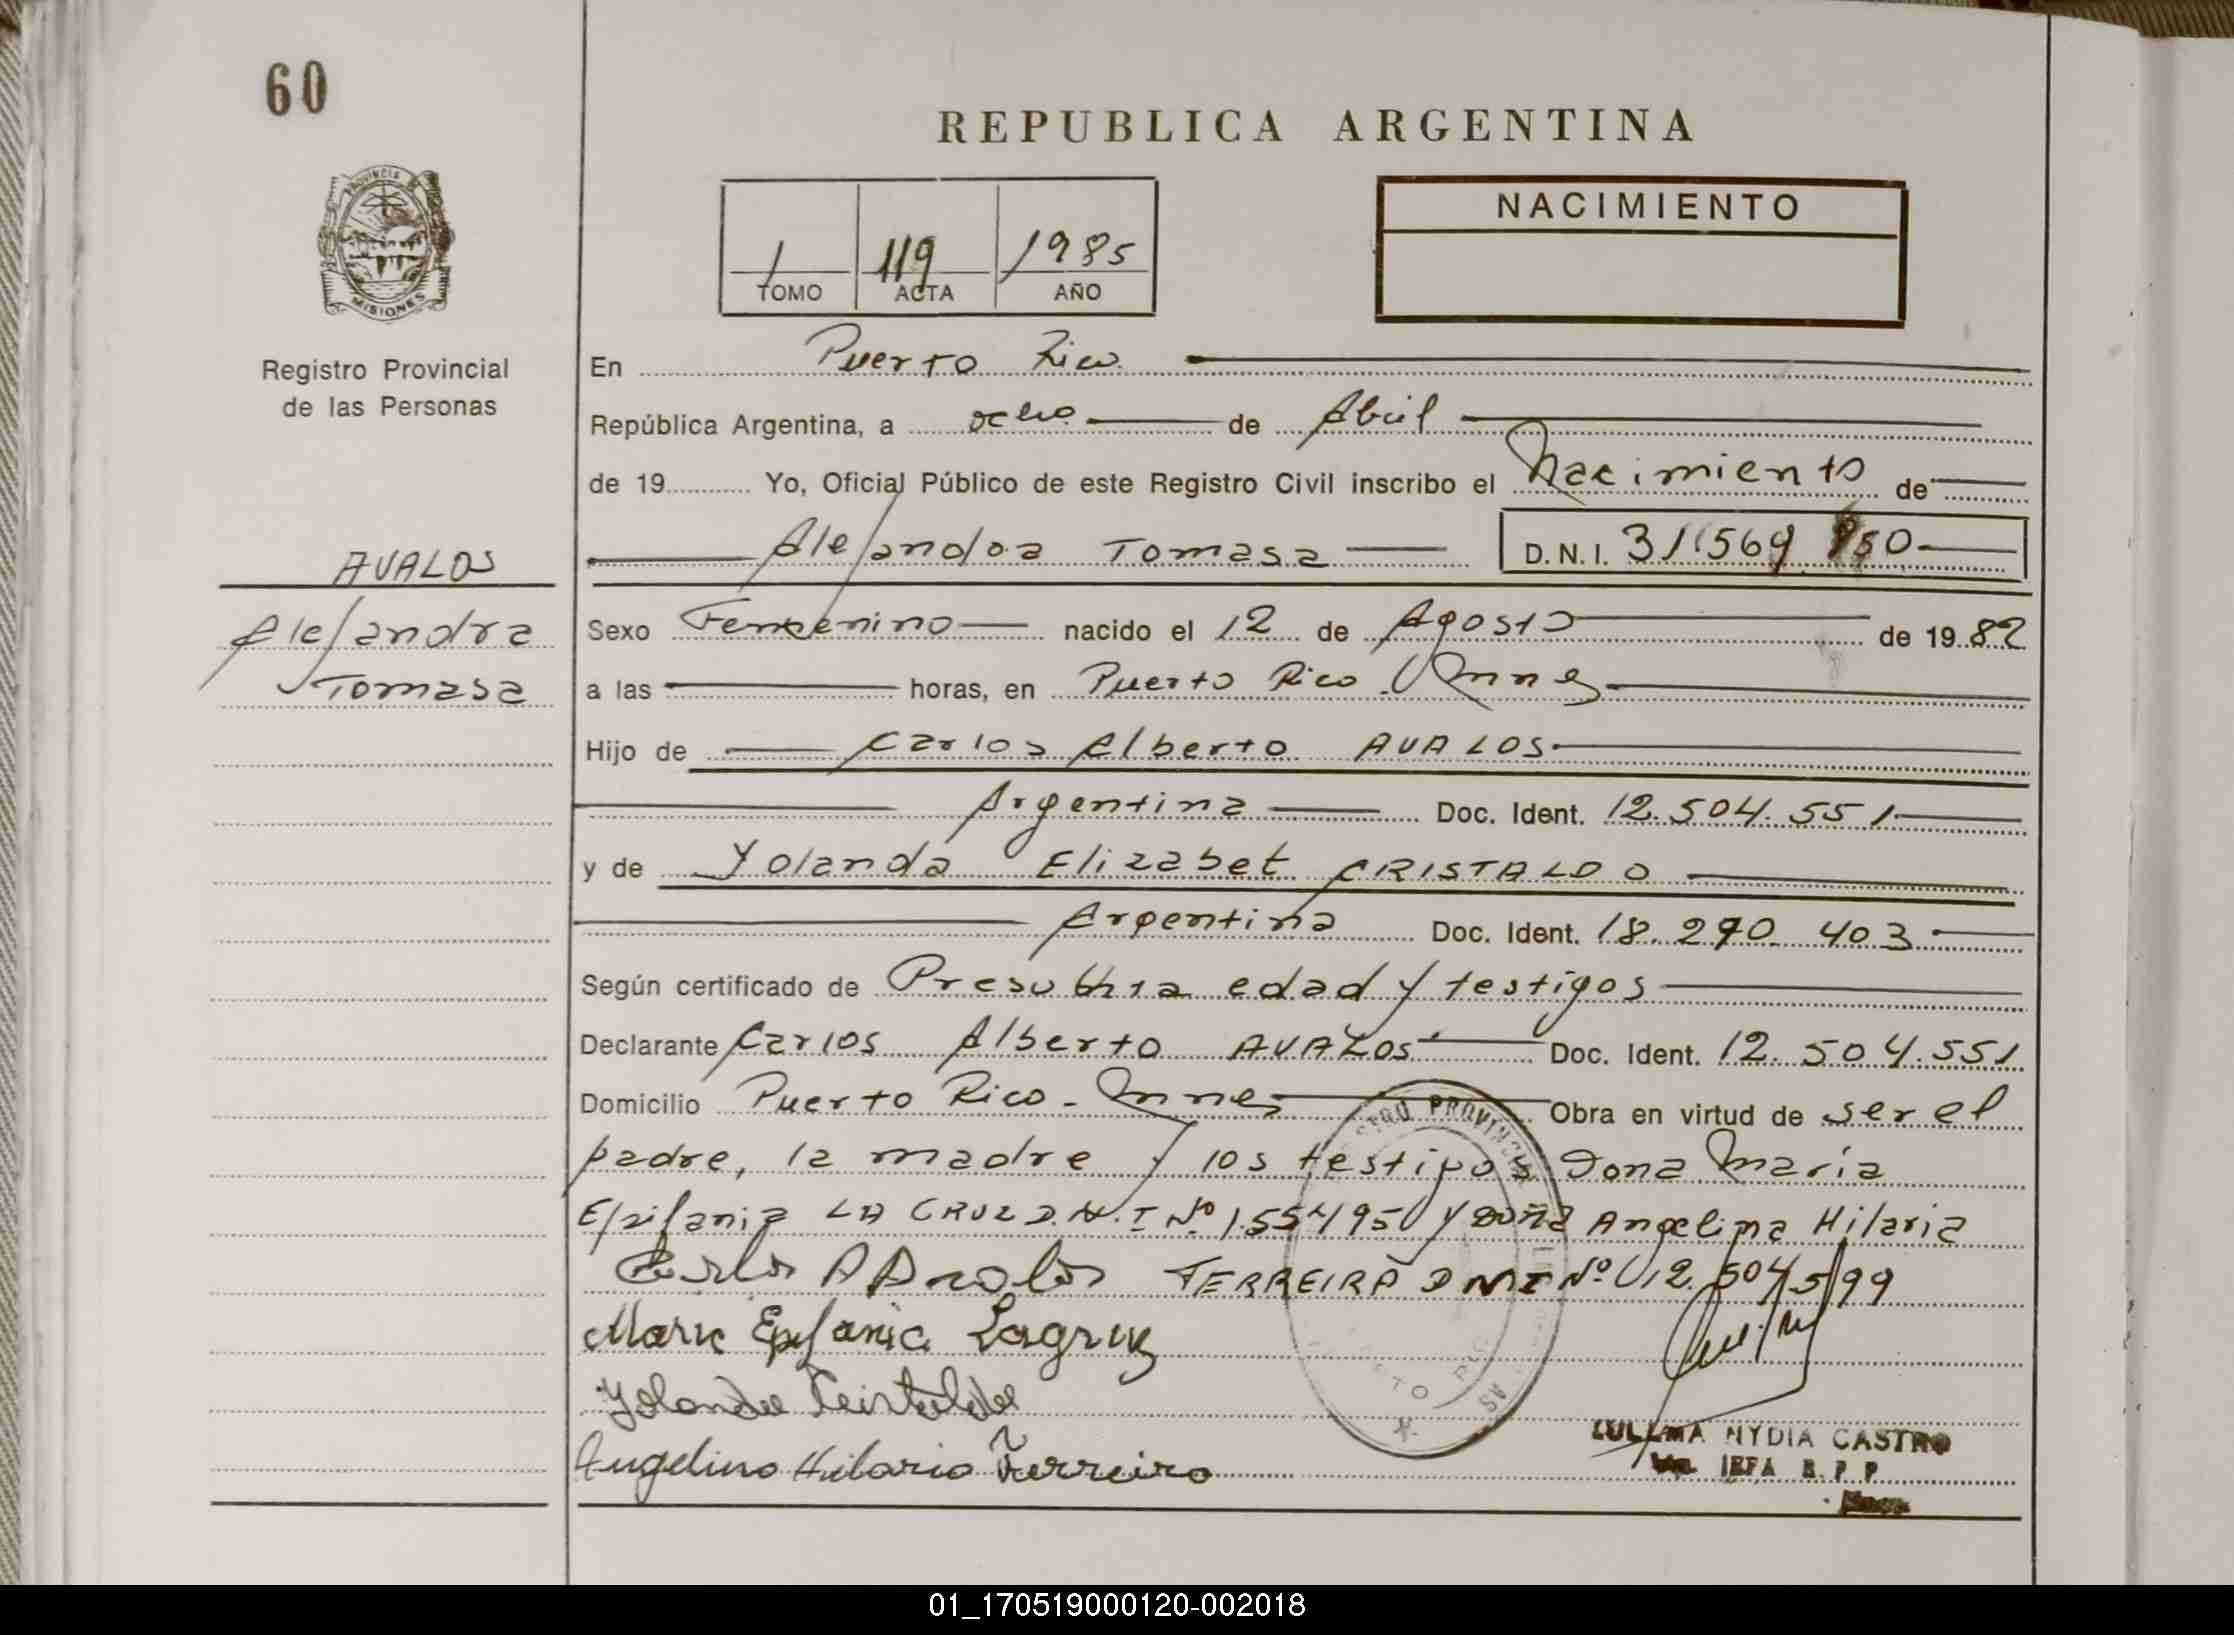 60
REPUBLICA ARGENTINA
PROVINCIA DE
MISIONES
NACIMIENTO
1 119 1985
TOMO ACTA AÑO
Registro Provincial
de las Personas
En Puerto Rico
República Argentina, a ocho de Abril
de 19 Yo, Oficial Público de este Registro Civil inscribo el Nacimiento de
Alejandra Tomasa D.N.I. 31.569
AVALOS
Alejandra
Tomasa
Sexo Femenino nacido el 12 de Agosto de 1982
a las horas, en Puerto Rico Mnes
Hijo de Carlos Alberto AVALOS
Argentina Doc. Ident. 12.504.551
y de Yolanda Elizabet CRISTALDO
Argentina Doc. Ident. 18.290.403
Según certificado de Presunta edad y testigos
Declarante Carlos Alberto AVALOS Doc. Ident. 12.504.551
Domicilio Puerto Rico - Mnes Obra en virtud de ser el
padre, la madre y los testigos Dona Maria
Epifania LA CRUZ D.N.I Nº y doña Angelina Hilaria
FERREIRA DNI Nº 12.504.599
Maria Epifania Lagruz
Yolanda Cristaldo
Angelina Hilaria Ferreira
NYDIA CASTRO
01_170519000120-002018